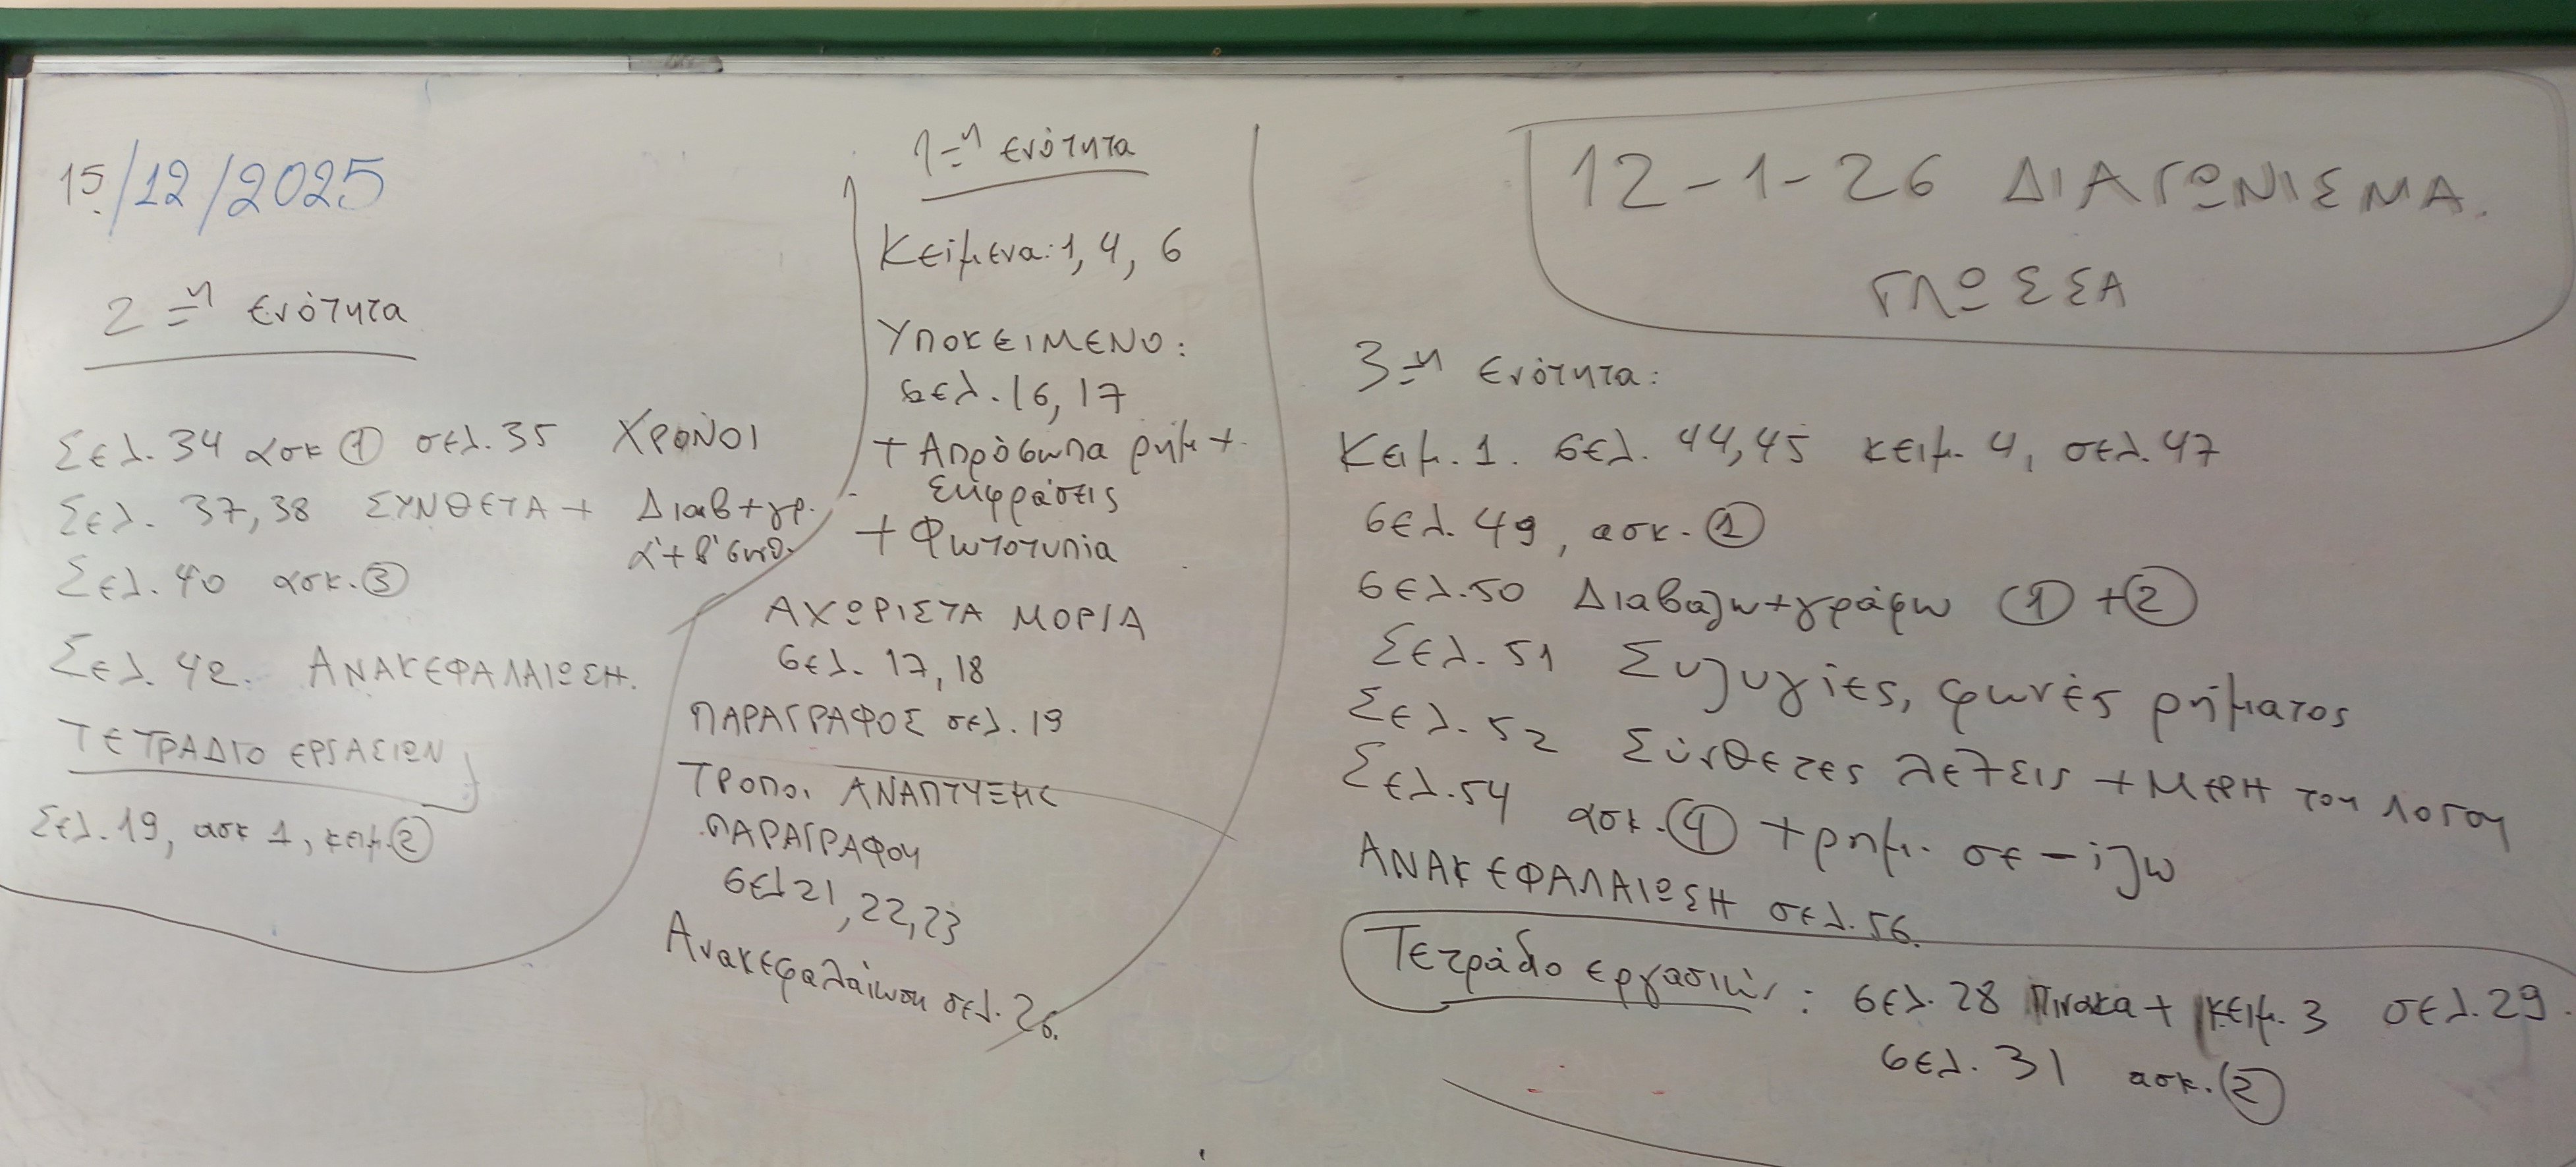 15/12/2025
2η ενότητα
Σελ. 34 ασκ ① σελ. 35 ΧΡΟΝΟΙ
Σελ. 37, 38 ΣΥΝΘΕΤΑ + Διαβ + γρ.
α' + β' συνθ.
Σελ. 40 ασκ. ③
Σελ. 42. ΑΝΑΚΕΦΑΛΑΙΩΣΗ.
ΤΕΤΡΑΔΙΟ ΕΡΓΑΣΙΩΝ
Σελ. 19, ασκ 1, κειμ. ②
1η ενότητα
Κείμενα: 1, 4, 6
ΥΠΟΚΕΙΜΕΝΟ:
σελ. 16, 17
+ Απρόσωπα ρήμ +
εκφράσεις
+ Φωτοτυπία
ΑΧΩΡΙΣΤΑ ΜΟΡΙΑ
σελ. 17, 18
ΠΑΡΑΓΡΑΦΟΣ σελ. 19
ΤΡΟΠΟΙ ΑΝΑΠΤΥΞΗΣ
ΠΑΡΑΓΡΑΦΟΥ
σελ 21, 22, 23
Ανακεφαλαίωση σελ. 26.
12-1-26 ΔΙΑΓΩΝΙΣΜΑ.
ΓΛΩΣΣΑ
3η ενότητα:
Κειμ. 1. σελ. 44, 45 κειμ. 4, σελ. 47
σελ. 49, ασκ. ①
σελ. 50 Διαβαζω + γράφω ① + ②
Σελ. 51 Συζυγίες, φωνές ρήματος
Σελ. 52 Σύνθετες λέξεις + ΜΕΡΗ του ΛΟΓΟΥ
Σελ. 54 ασκ. ④ + ρημ. σε -ίζω
ΑΝΑΚΕΦΑΛΑΙΩΣΗ σελ. 56.
Τετράδιο εργασιών: σελ. 28 Πινακα + κειμ. 3 σελ. 29.
σελ. 31 ασκ. ②